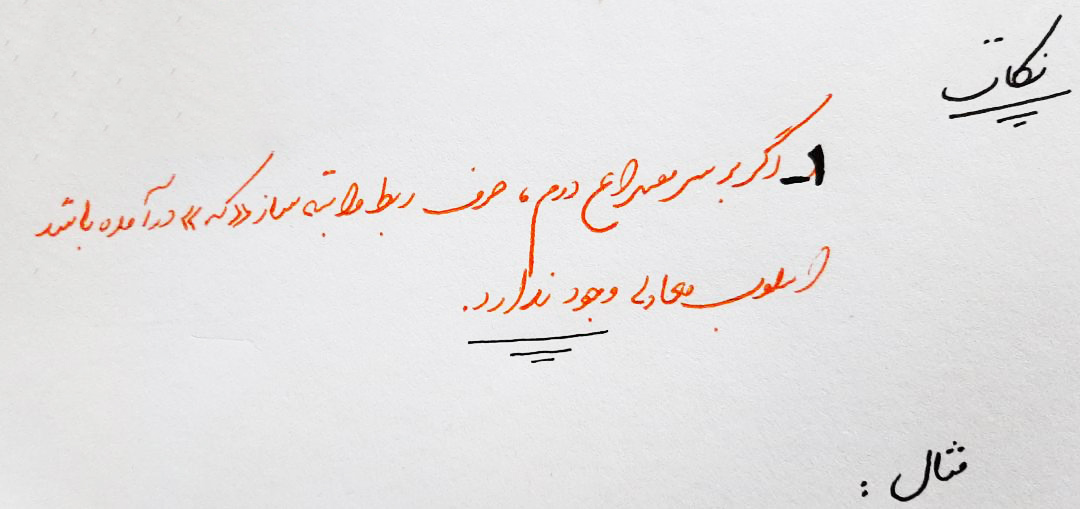 نکات
1- اگر بر سر مصراع دوم، حرف ربط وابسته ساز «که» درآمده باشد
اسلوب معادله وجود ندارد.
مثال :